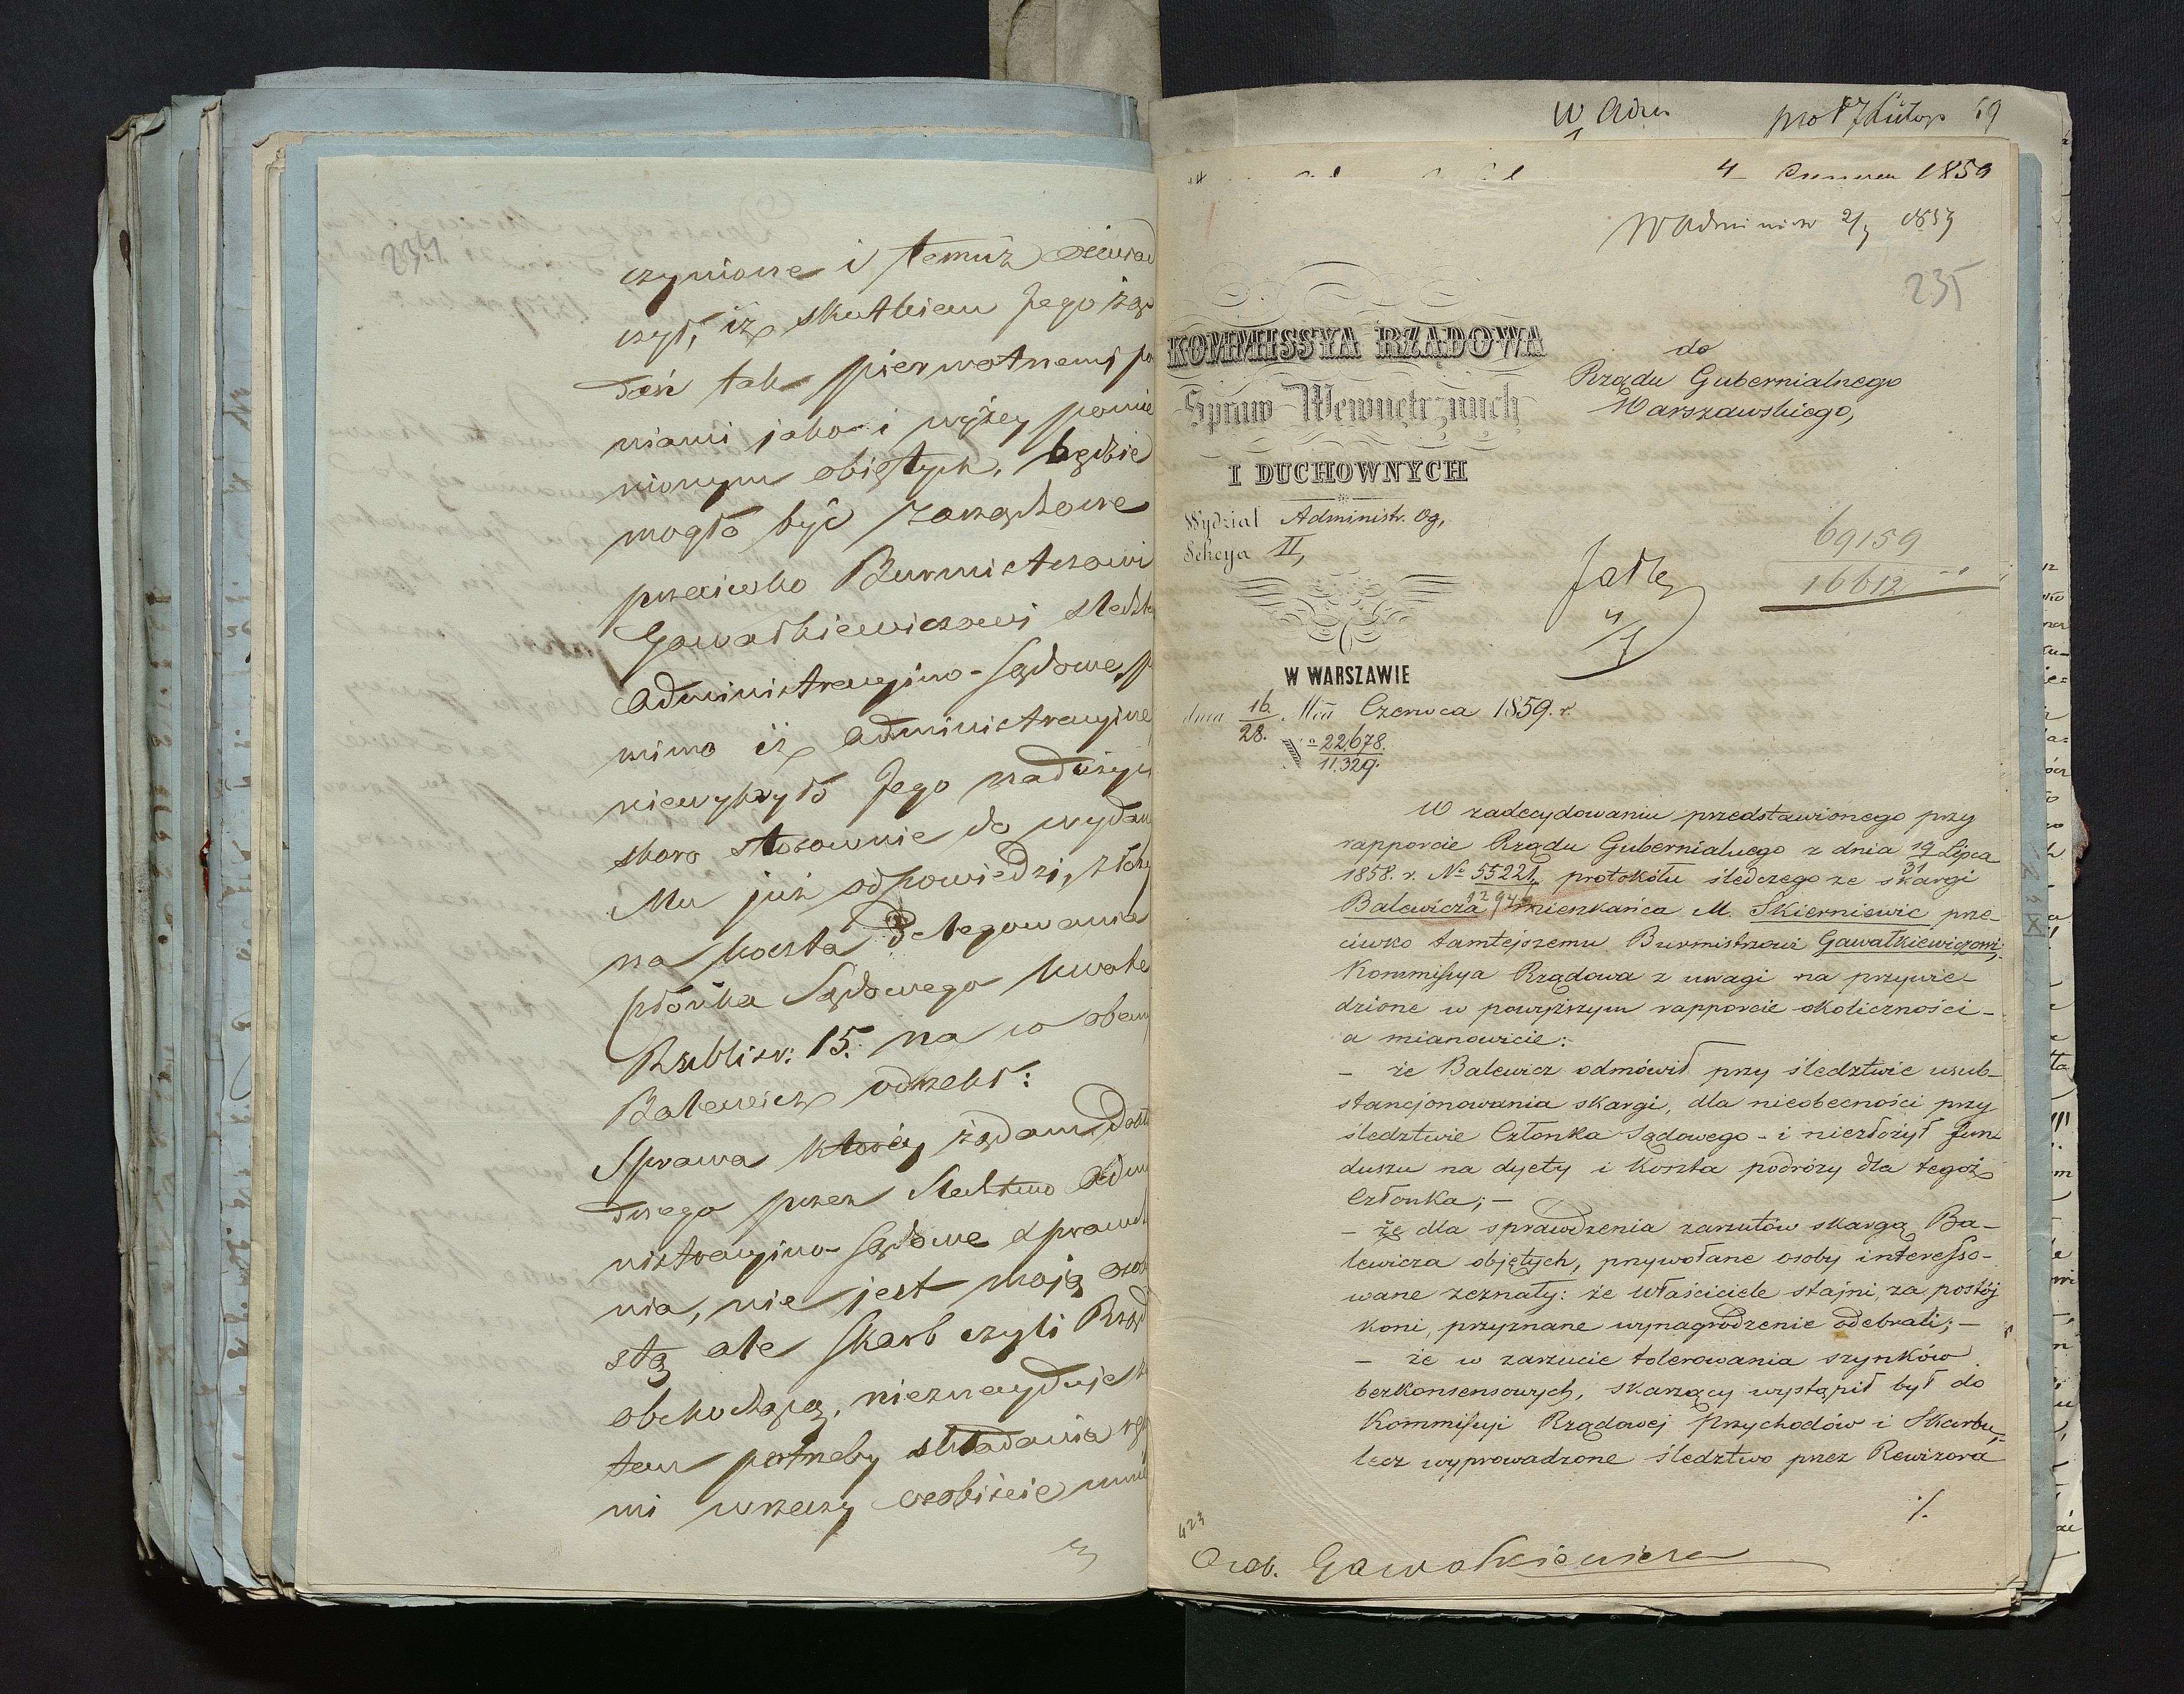 czynione i temuż oświad
czył, iż skutkiem Jego żąd
dań tak pierwotnemi po
niami jako i wyżey pomie
nionym obiętych, będzie
mogło być zarządzone
przeciwko Burmistrzowi
Gawałkiewiczowi śledzt
Administracyino-Sądowe, p
mimo iż administracyine
niewykryło Jego nadużyc
skoro stosownie do wydan
Mu już odpowiedzi, złoży
na koszta delegowania
członka Sądowego kwotę
Rubli sr: 15. na co obecny
Balewicz odrzekł:
Sprawa któréy żądam, dokł
dnego przez śledztwo Admi
nistracyino-Sądowe sprawdze
nia, nie jest moją osobi
stą ale Skarb czyli Rząd
obchodzącą, nieznayduję za
tem potrzeby składania
mi w rzeczy osobiście mnie
234
W Adm
59
4 Czerwca 1859
W Admini 2/7 1859
235
KOMMISSYA RZĄDOWA
Spraw Wewnętrznych
I DUCHOWNYCH
Wydział Administr. Og,
Sekcya II,
W WARSZAWIE
dnia 16/28. Mca Czerwca 1859. r.
No 22,678.
11,329.
do
Rządu Gubernialnego
Warszawskiego,
69159
16612
W zadecydowaniu przedstawionego przy
rapporcie Rządu Gubernialnego z dnia 19/31 Lipca
1858. r. No 55221/12948 protokółu śledczego ze skargi
Balewicza mieszkańca M. Skierniewic prze-
ciwko tamtejszemu Burmistrzowi Gawałkiewiczowi,
Kommissya Rządowa z uwagi na przywie-
dzione w powyższym rapporcie okoliczności -
a mianowicie:
- że Balewicz odmówił przy śledztwie usub-
stancjonowania skargi, dla nieobecności przy
śledztwie Członka Sądowego - i niezłożył fun-
duszu na dyety i koszta podróży dla tegoż
Członka; -
- że dla sprawdzenia zarzutów skargą Ba-
lewicza objętych, przywołane osoby interesso-
wane zeznały: że właściciele stajni, za postój
koni, przyznane wynagrodzenie odebrali; -
- że w zarzucie tolerowania szynków
bezkonsensowych, skarżący wystąpił był do
Kommissyi Rządowej Przychodów i Skarbu,
lecz wyprowadzone śledztwo przez Rewizora
./.
423
Osob. Gawałkiewicza